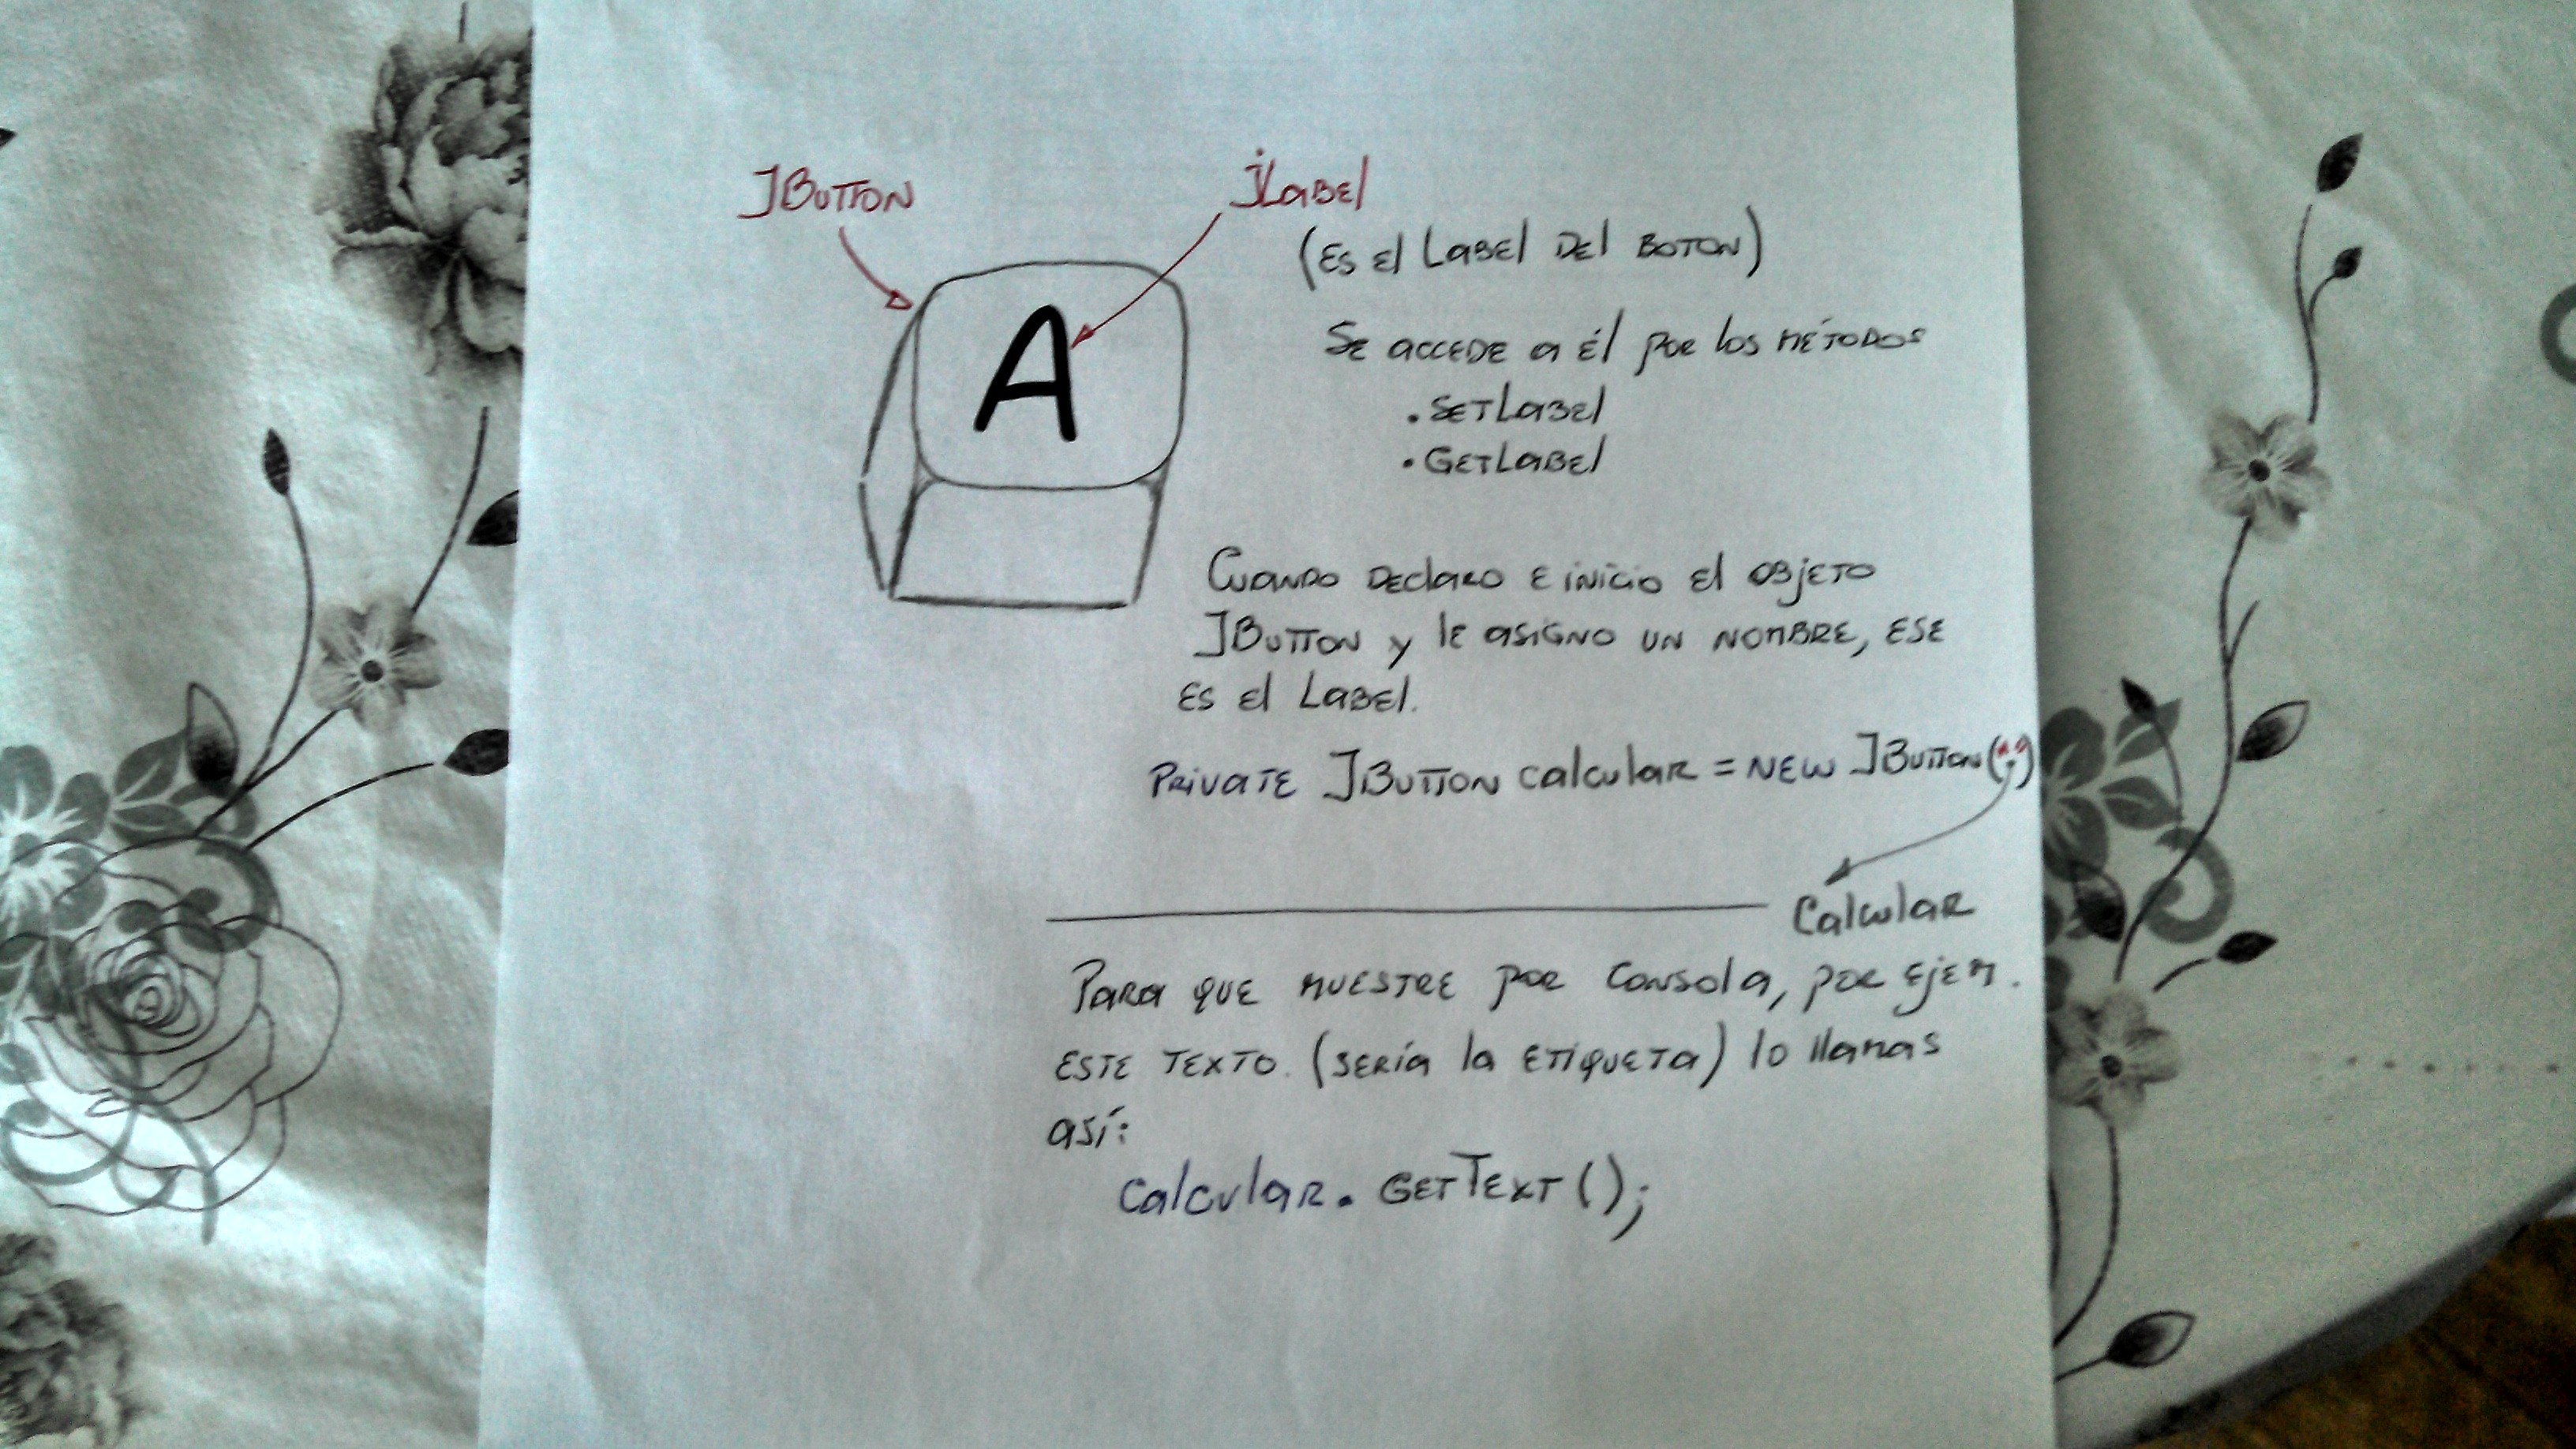 JButton
jLabel
(Es el Label del boton)
A
Se accede a él por los métodos
.setLabel
.getLabel
Cuando declaro e inicio el objeto
JButton y le asigno un nombre, ese
es el Label.
private JButton calcular = new JButton("")
Calcular
Para que muestre por consola, por ejem.
este texto. (sería la etiqueta) lo llamas
así:
calcular.getText();